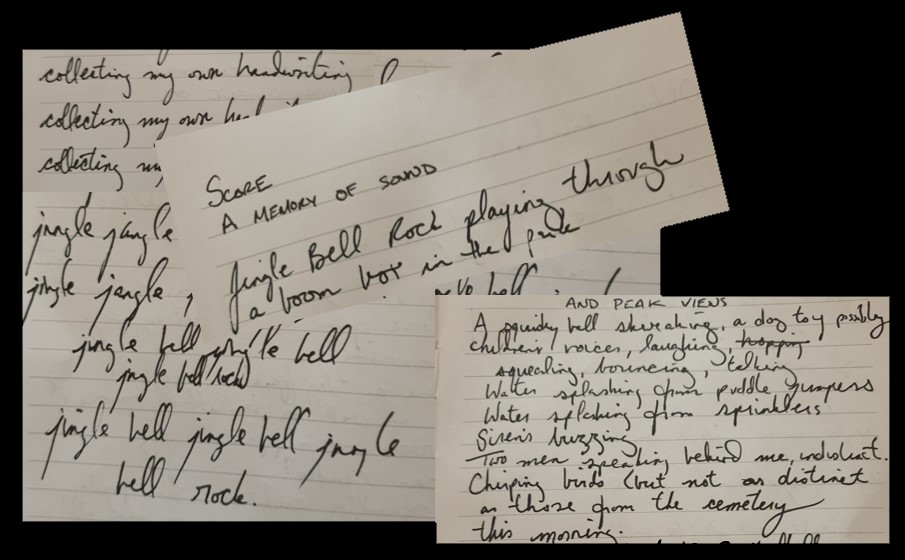 collecting my own handwriting
collecting my own
collecting my
jingle jangle
jingle jangle,
jingle bell jingle bell
jingle bell rock
jingle bell jingle bell jingle
bell rock.
SCORE
A MEMORY OF SOUND
Jingle Bell Rock playing through
a boom box in the park
AND PEAK VIEWS
A squidgy ball skweaking, a dog toy possibly
children's voices, laughing,
squealing, bouncing, talking
Water splashing from puddle jumpers
Water splashing from sprinklers
Sirens buzzing
Two men speaking behind me, indistinct.
Chirping birds (but not as distinct
as those from the cemetery
this morning.